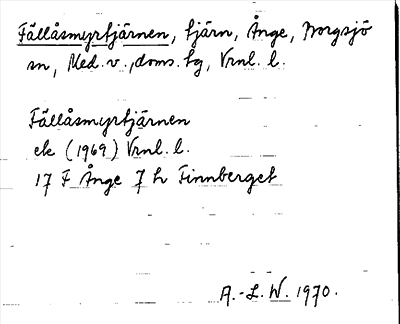 Fällåsmyrtjärnen, tjärn, Ånge, Borgsjö
sn, Med. v., doms. tg, Vrnl. l.
Fällåsmyrtjärnen
ek (1969) Vrnl. l.
17 F Ånge 7 h Finnberget
A.-L. W. 1970.